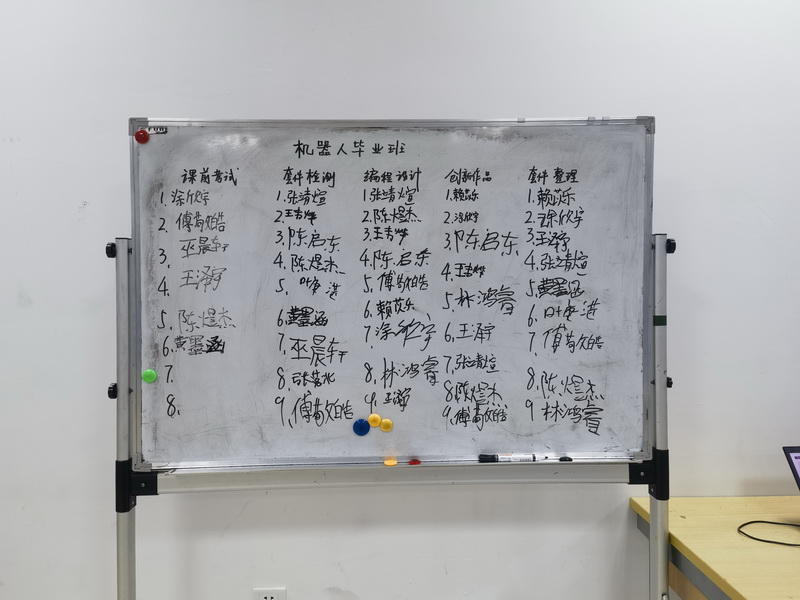 机器人毕业班
课前考试
1. 涂欣宇
2. 傅菊皓
3. 巫晨
4. 王泽宇
5. 陈煜杰
6. 黄墨涵
7.
8.
套件检测
1. 张清煊
2. 王吉烨
3. 陈启东
4. 陈煜杰
5. 叶康港
6. 黄墨涵
7. 巫晨
8. 张
9. 傅皓
编程设计
1. 张清煊
2. 陈煜杰
3. 王吉烨
4. 陈启东
5. 傅皓
6. 赖苡乐
7. 涂欣宇
8. 林鸿睿
9. 王泽宇
创新作品
1. 赖苡乐
2. 涂欣宇
3. 陈启东
4. 王吉烨
5. 林鸿睿
6. 王泽宇
7. 张清煊
8. 陈煜杰
9. 傅皓
套件整理
1. 赖苡乐
2. 涂欣宇
3. 王泽宇
4. 张清煊
5. 黄墨涵
6. 叶康港
7. 傅皓
8. 陈煜杰
9 林鸿睿